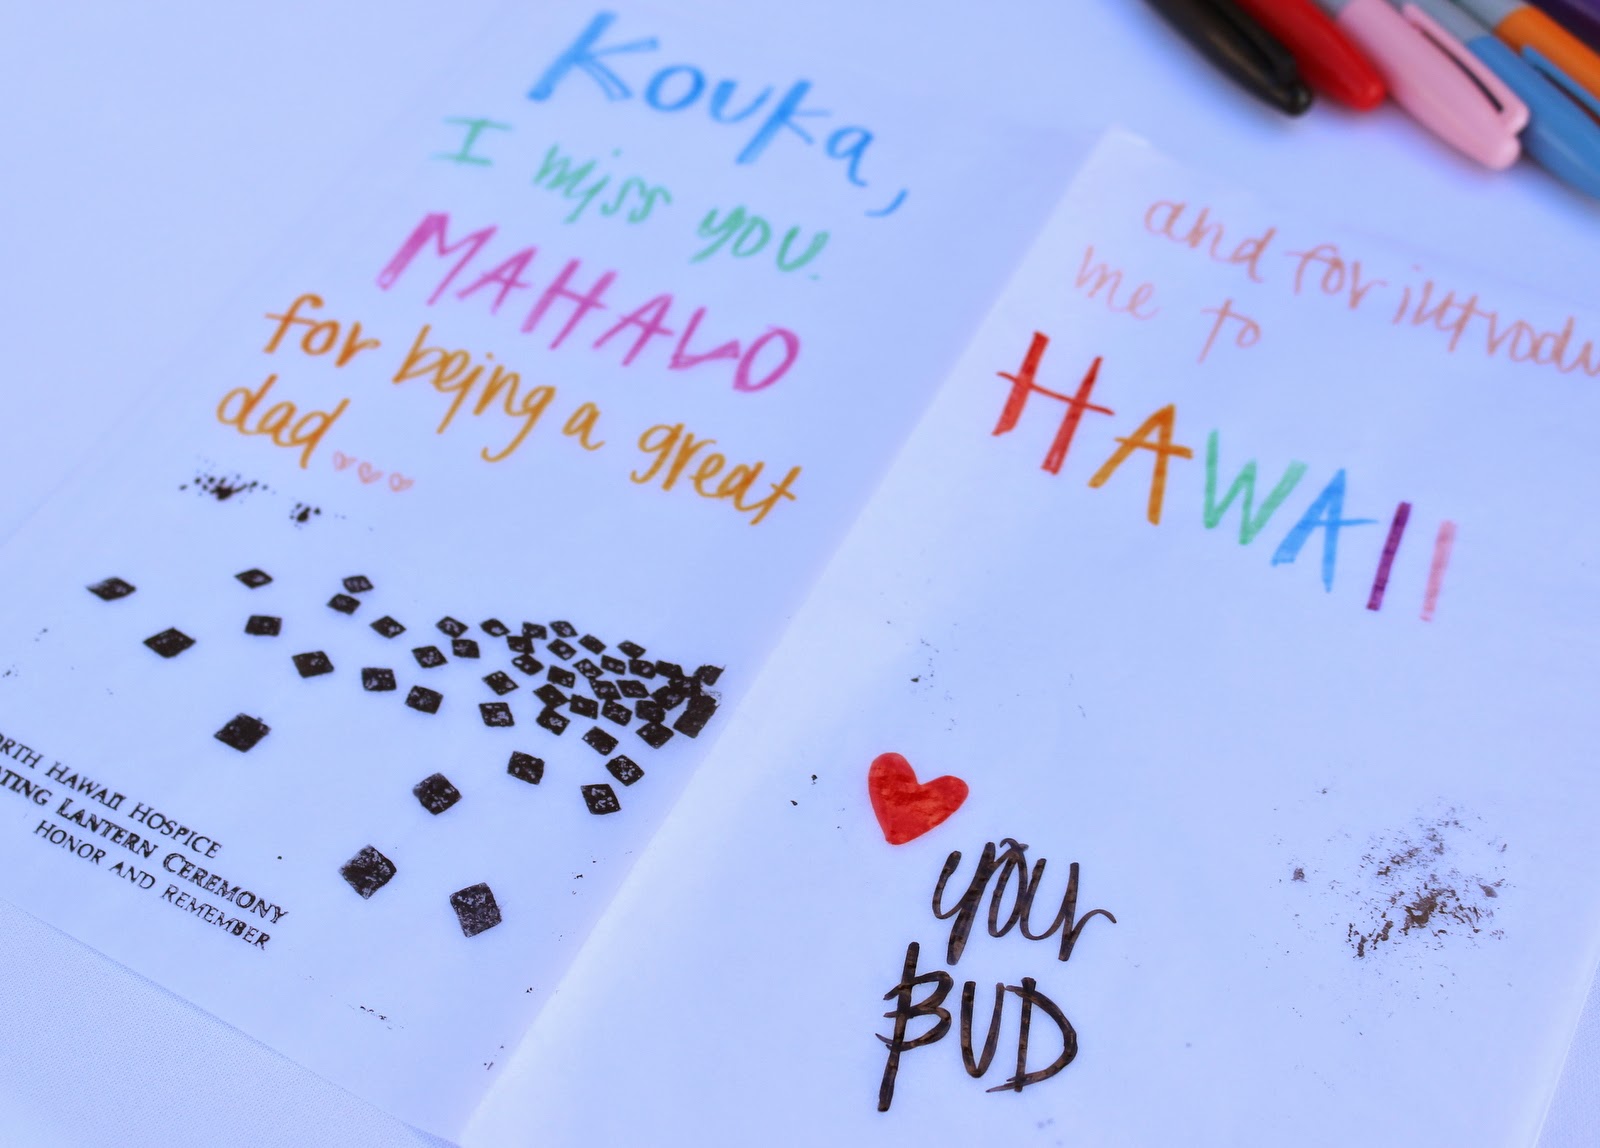 Kouka,
I miss you.
MAHALO
for being a great
dad
ORTH HAWAII HOSPICE
ATING LANTERN CEREMONY
HONOR AND REMEMBER
and for introdu
me to
HAWAII
your
BUD